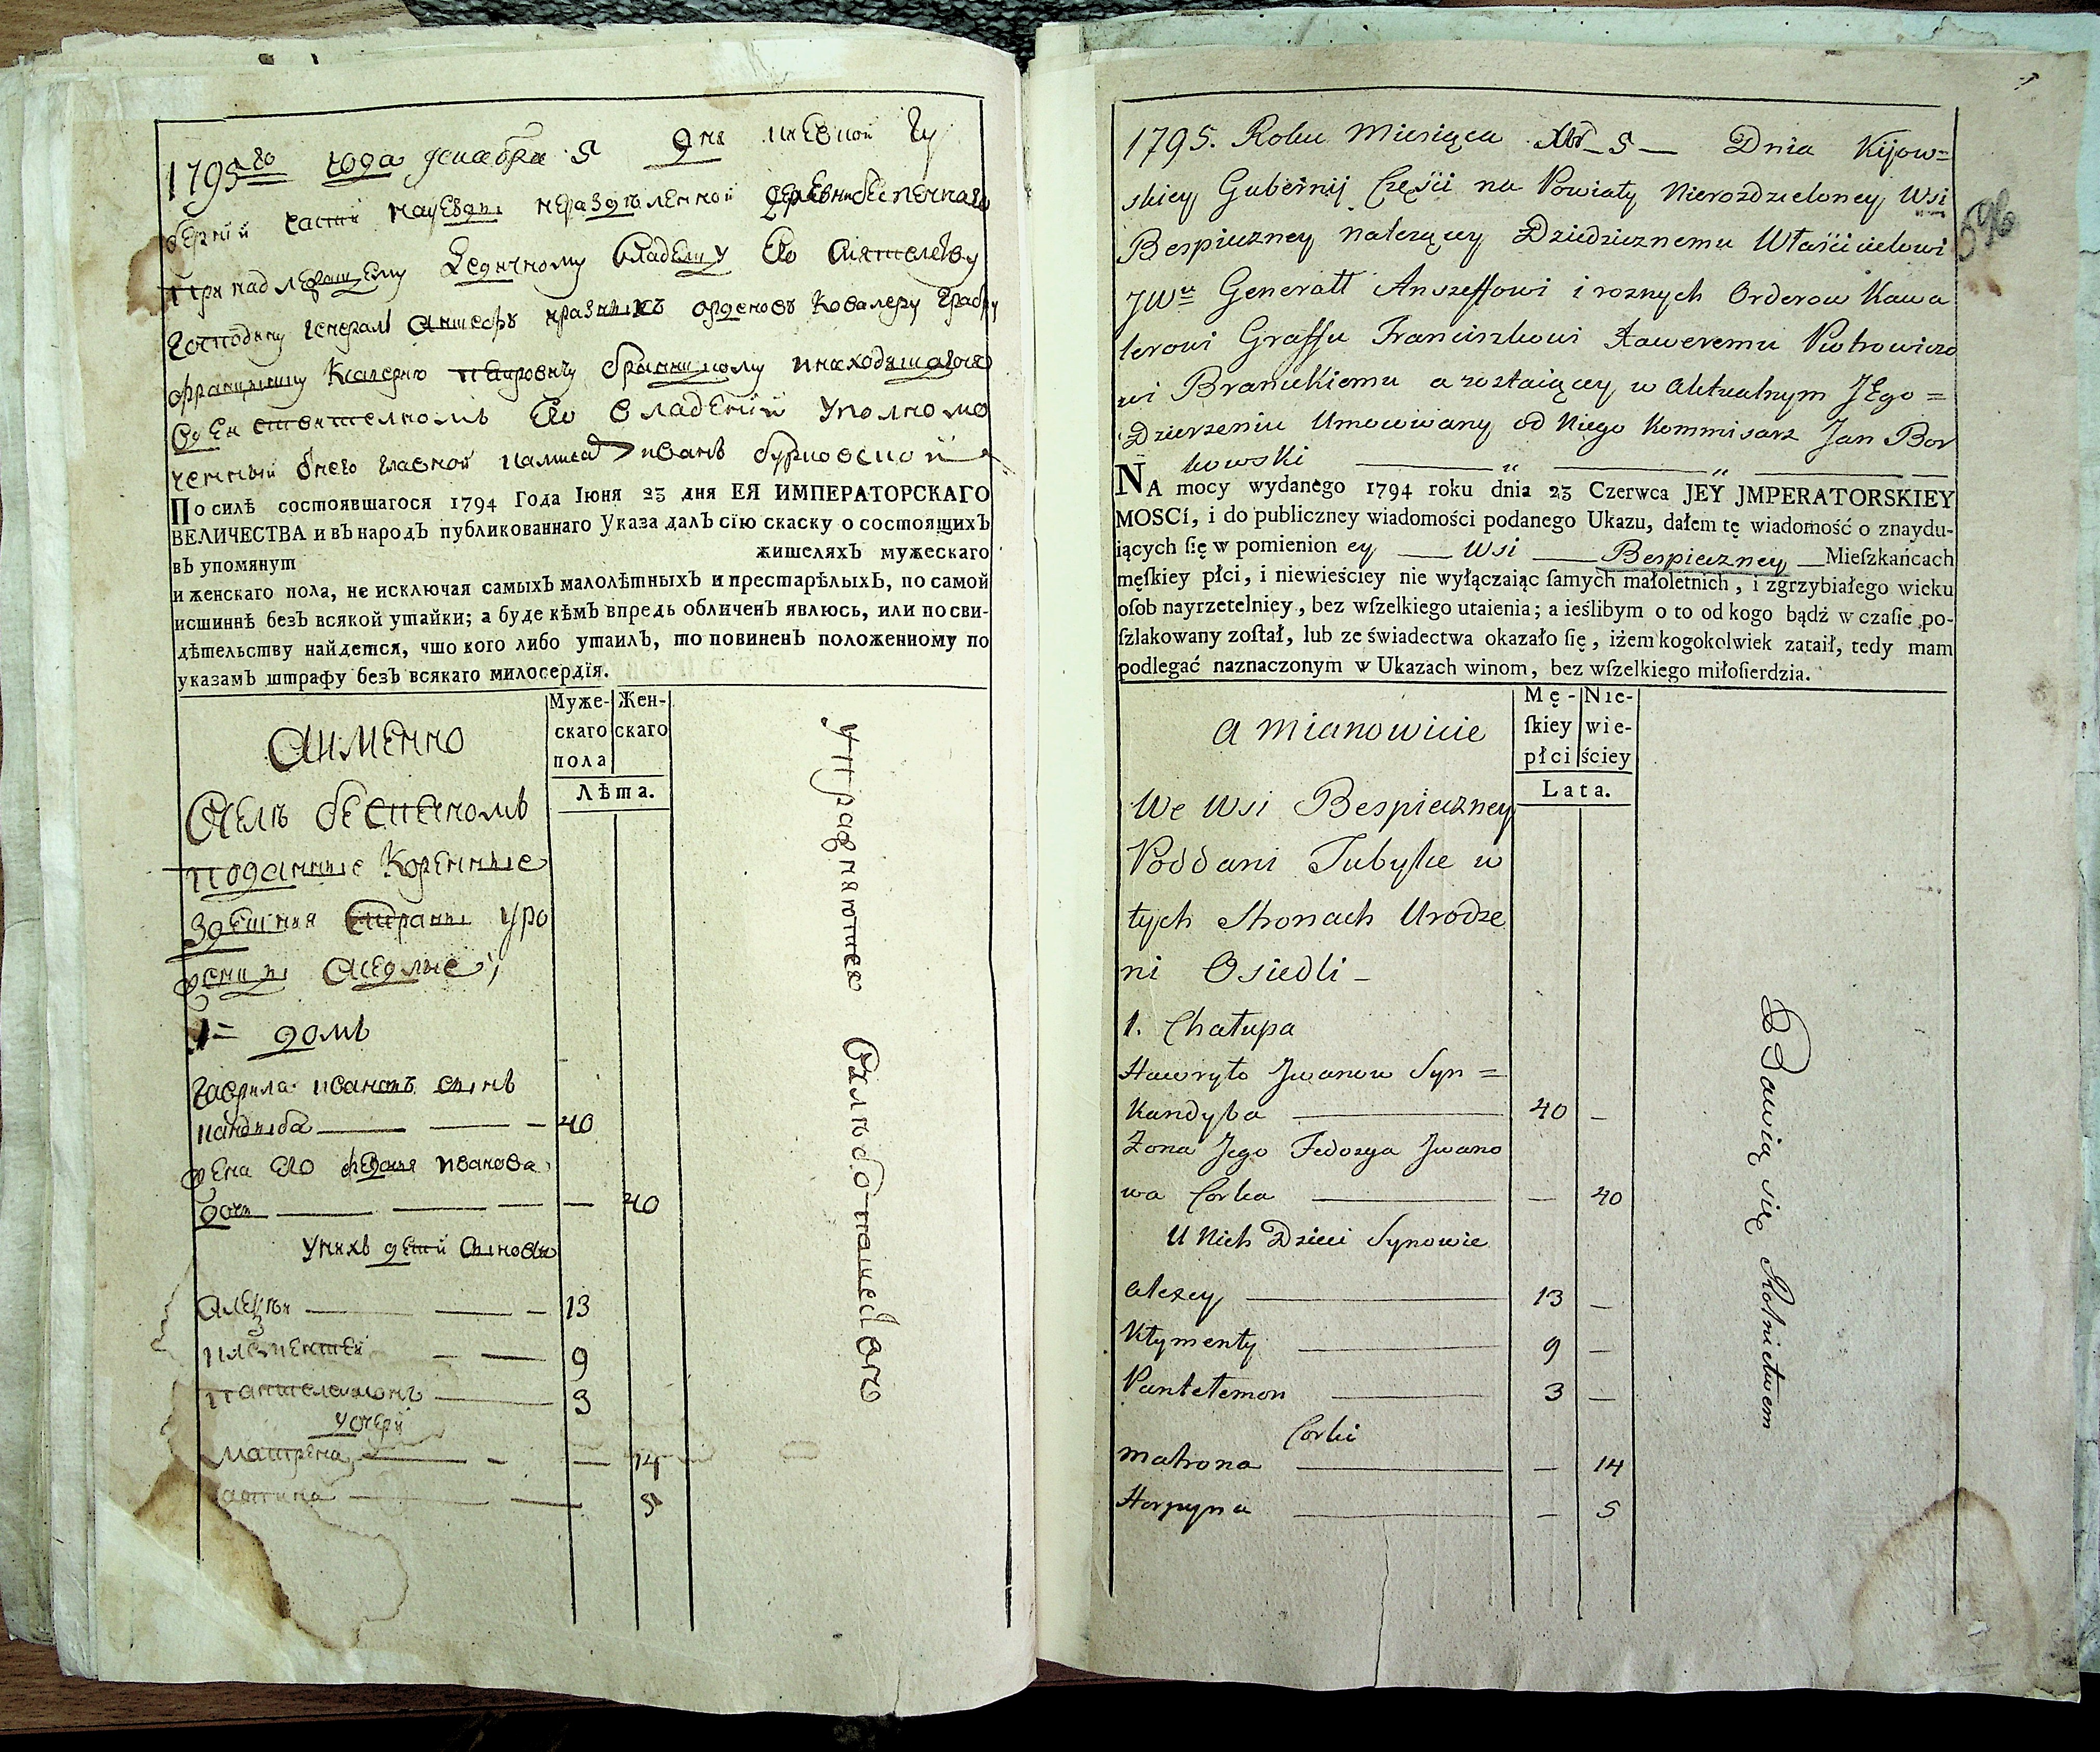 1795го года декабря 5 дня киевской гу
бернии части на уезды неразделенной деревни беспечнаго
принадлежащему ведичному владелцу его сиятелству
господину генерал аншефъ и разныхъ орденовъ ковалеру графу
францишку ксаверию петровичу браницкому и находящагося
в действителномъ его владении уполномо
ченный от него главной коммисаръ иванъ бурковский
По силѣ состоявшагося 1794 Года Іюня 23 дня ЕЯ ИМПЕРАТОРСКАГО
ВЕЛИЧЕСТВА и въ народъ публикованнаго Указа далъ сію скаску о состоящихъ
въ упомянут жителяхъ мужескаго
и женскаго пола, не исключая самыхъ малолѣтныхъ и престарѣлыхъ, по самой
истиннѣ безъ всякой утайки; а буде кѣмъ впредь обличенъ явлюсь, или по сви-
дѣтельству найдется, что кого либо утаилъ, то повиненъ положенному по
указамъ штрафу безъ всякаго милосердія.
Муже- Жен-
скаго скаго
пола
Лѣта.
Аименно
Селѣ беспечномъ
поданные коренные
здешния страны уро
женцы аседлые;
1= домъ
гаврила ивановъ сынъ
кандыба 40
жена его федося иванова
дочь 40
У нихъ детей сыновя
алексѣй 13
климентей 9
пантелемонъ 3
дочери
матрена 14
5
упражняются хлѣбопашествомъ
1795. Roku Miesiąca Xbr 5 Dnia Kijow=
skiey Gubernij Części na Powiaty Nierozdzieloney Wsi
Bespieczney należącey Dziedzicznemu Właścicielowi
JWu Generałł Anszeffowi i roznych Orderow Kawa
lerowi Graffu Franciszkowi Xaweremu Piotrowiczo
wi Branickiemu a zostaiącey w aktualnym JEgo=
Dzierzeniu Umocowany od Niego Kommisarz Jan Bor
kowski
NA mocy wydanego 1794 roku dnia 23 Czerwca JEY JMPERATORSKIEY
MOSCí, i do publiczney wiadomości podanego Ukazu, dałem tę wiadomość o znaydu-
iących ſię w pomienion ey Wsi Bespieczney Mieſzkańcach
męſkiey płci, i niewieściey nie wyłączaiąc ſamych małoletnich, i zgrzybiałego wieku
oſob nayrzetelniey, bez wſzelkiego utaienia; a ieślibym o to od kogo bądź w czaſie po-
ſzlakowany zoſtał, lub ze świadectwa okazało ſię, iżem kogokolwiek zataił, tedy mam
podlegać naznaczonym w Ukazach winom, bez wſzelkiego miłoſierdzia.
Mę- Nie-
ſkiey wie-
płci ściey
Lata.
a mianowicie
We Wsi Bespieczney
Poddani Tubylce w
tych Stronach Urodze
ni Osiedli
1. Chałupa
Hawryło Jwanow Syn=
Kandyba 40
Żona Jego Fedosya Jwano
wa Corka 40
U Nich Dzieci Synowie
alexey 13
Kłymenty 9
Pantełemon 3
Corki
Matrona 14
Horpyna 5
Bawią się Rolnictwem
596